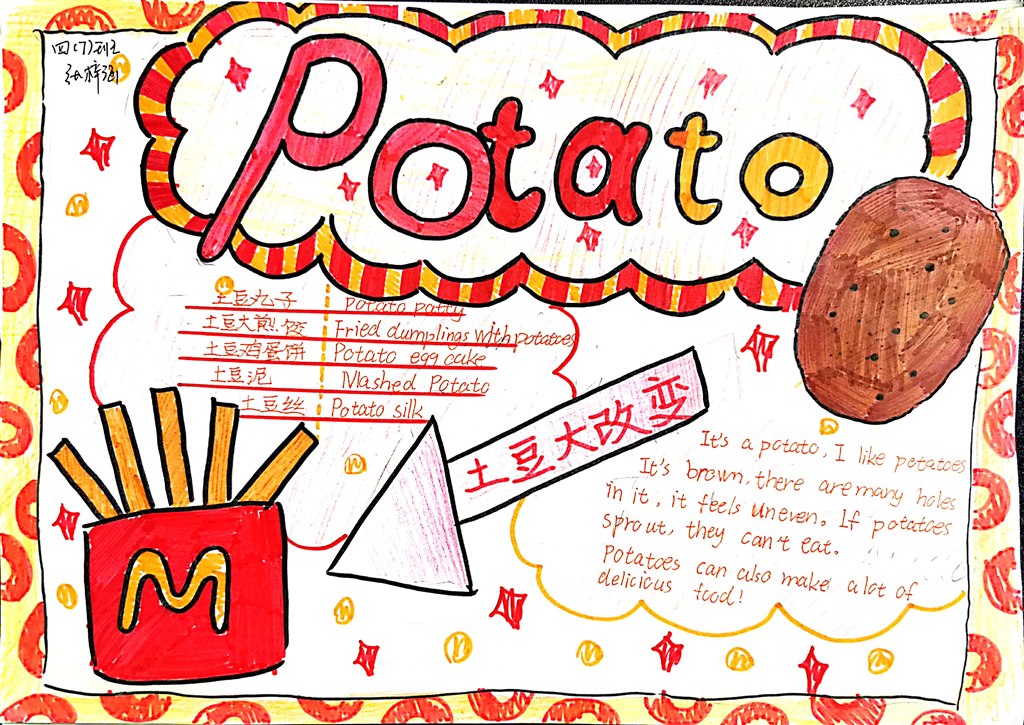 四(7)班
Potato
土豆丸子 Potato patty
土豆大煎饺 Fried dumplings with potatoes
土豆鸡蛋饼 Potato egg cake
土豆泥 Mashed Potato
土豆丝 Potato silk
土豆大改变
It's a potato, I like potatoes
It's brown, there are many holes
in it, it feels uneven. If potatoes
sprout, they can't eat.
Potatoes can also make a lot of
delicious food!
M